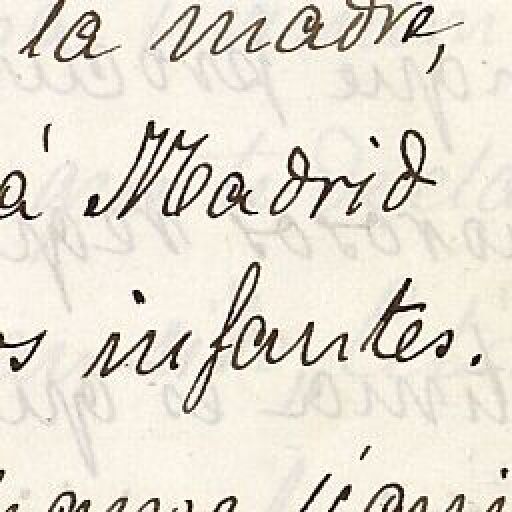 la madre,
á Madrid
os infantes.